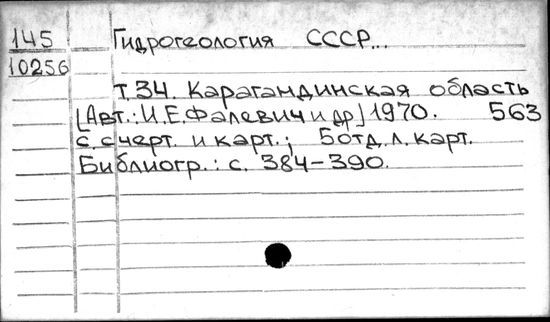 145 Гидрогеология СССР...
10256
т. 34. Карагандинская область
[Авт.: И.Е Фалевич и др] 1970. 563
с. с черт. и карт.; 5 отд. л. карт.
Библиогр.: с. 384-390.